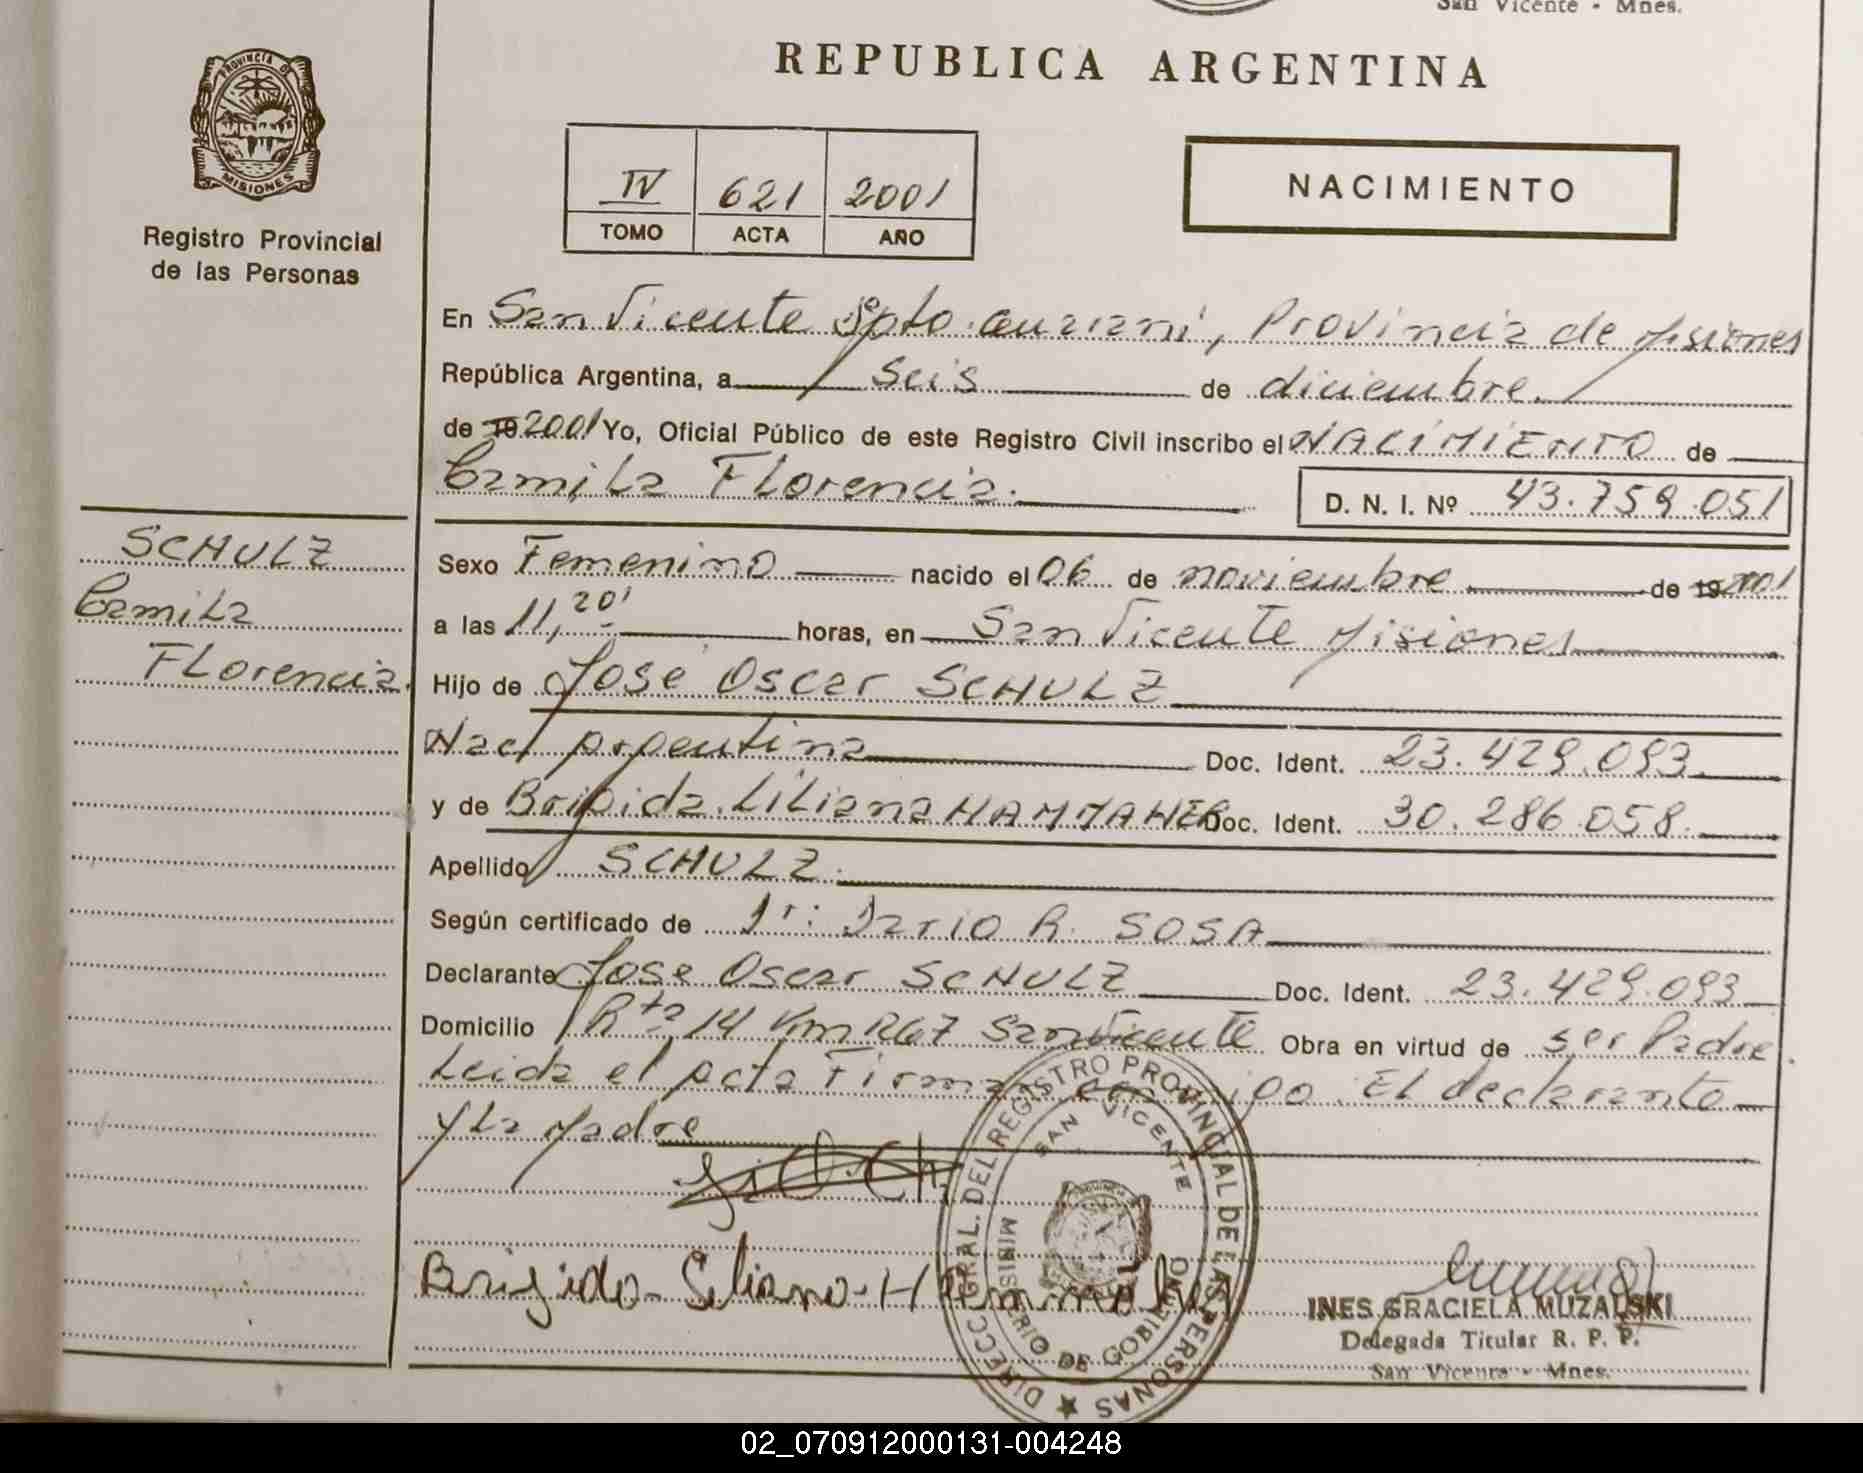 San Vicente - Mnes.
REPUBLICA ARGENTINA
PROVINCIA DE
MISIONES
Registro Provincial
de las Personas
IV 621 2001
TOMO ACTA AÑO
NACIMIENTO
En San Vicente Dpto. Guaraní, Provincia de Misiones
República Argentina, a seis de diciembre.
de 19 2001 Yo, Oficial Público de este Registro Civil inscribo el NACIMIENTO de
Camila Florencia.
D. N. I. Nº 43.759.051
SCHULZ
Camila
Florencia.
Sexo Femenino nacido el 06 de noviembre de 19 2001
a las 11,20' horas, en San Vicente Misiones
Hijo de José Oscar SCHULZ
Nac. Argentina Doc. Ident. 23.429.093
y de Brigida Liliana HAMMAHER Doc. Ident. 30.286.058
Apellido SCHULZ
Según certificado de Dr: Dario R. SOSA
Declarante Jose Oscar SCHULZ Doc. Ident. 23.429.093
Domicilio Rta 14 Km 1267 San Vicente Obra en virtud de ser Padre.
Leida el acta Firman conmigo. El declarante
y La Madre
Brigida Liliana Hammaher
DIRECC. GRAL. DEL REGISTRO PROVINCIAL DE LAS PERSONAS
SAN VICENTE
MINISTERIO DE GOBIERNO
INES GRACIELA MUZALSKI
Delegada Titular R. P. P.
San Vicente - Mnes.
02_070912000131-004248